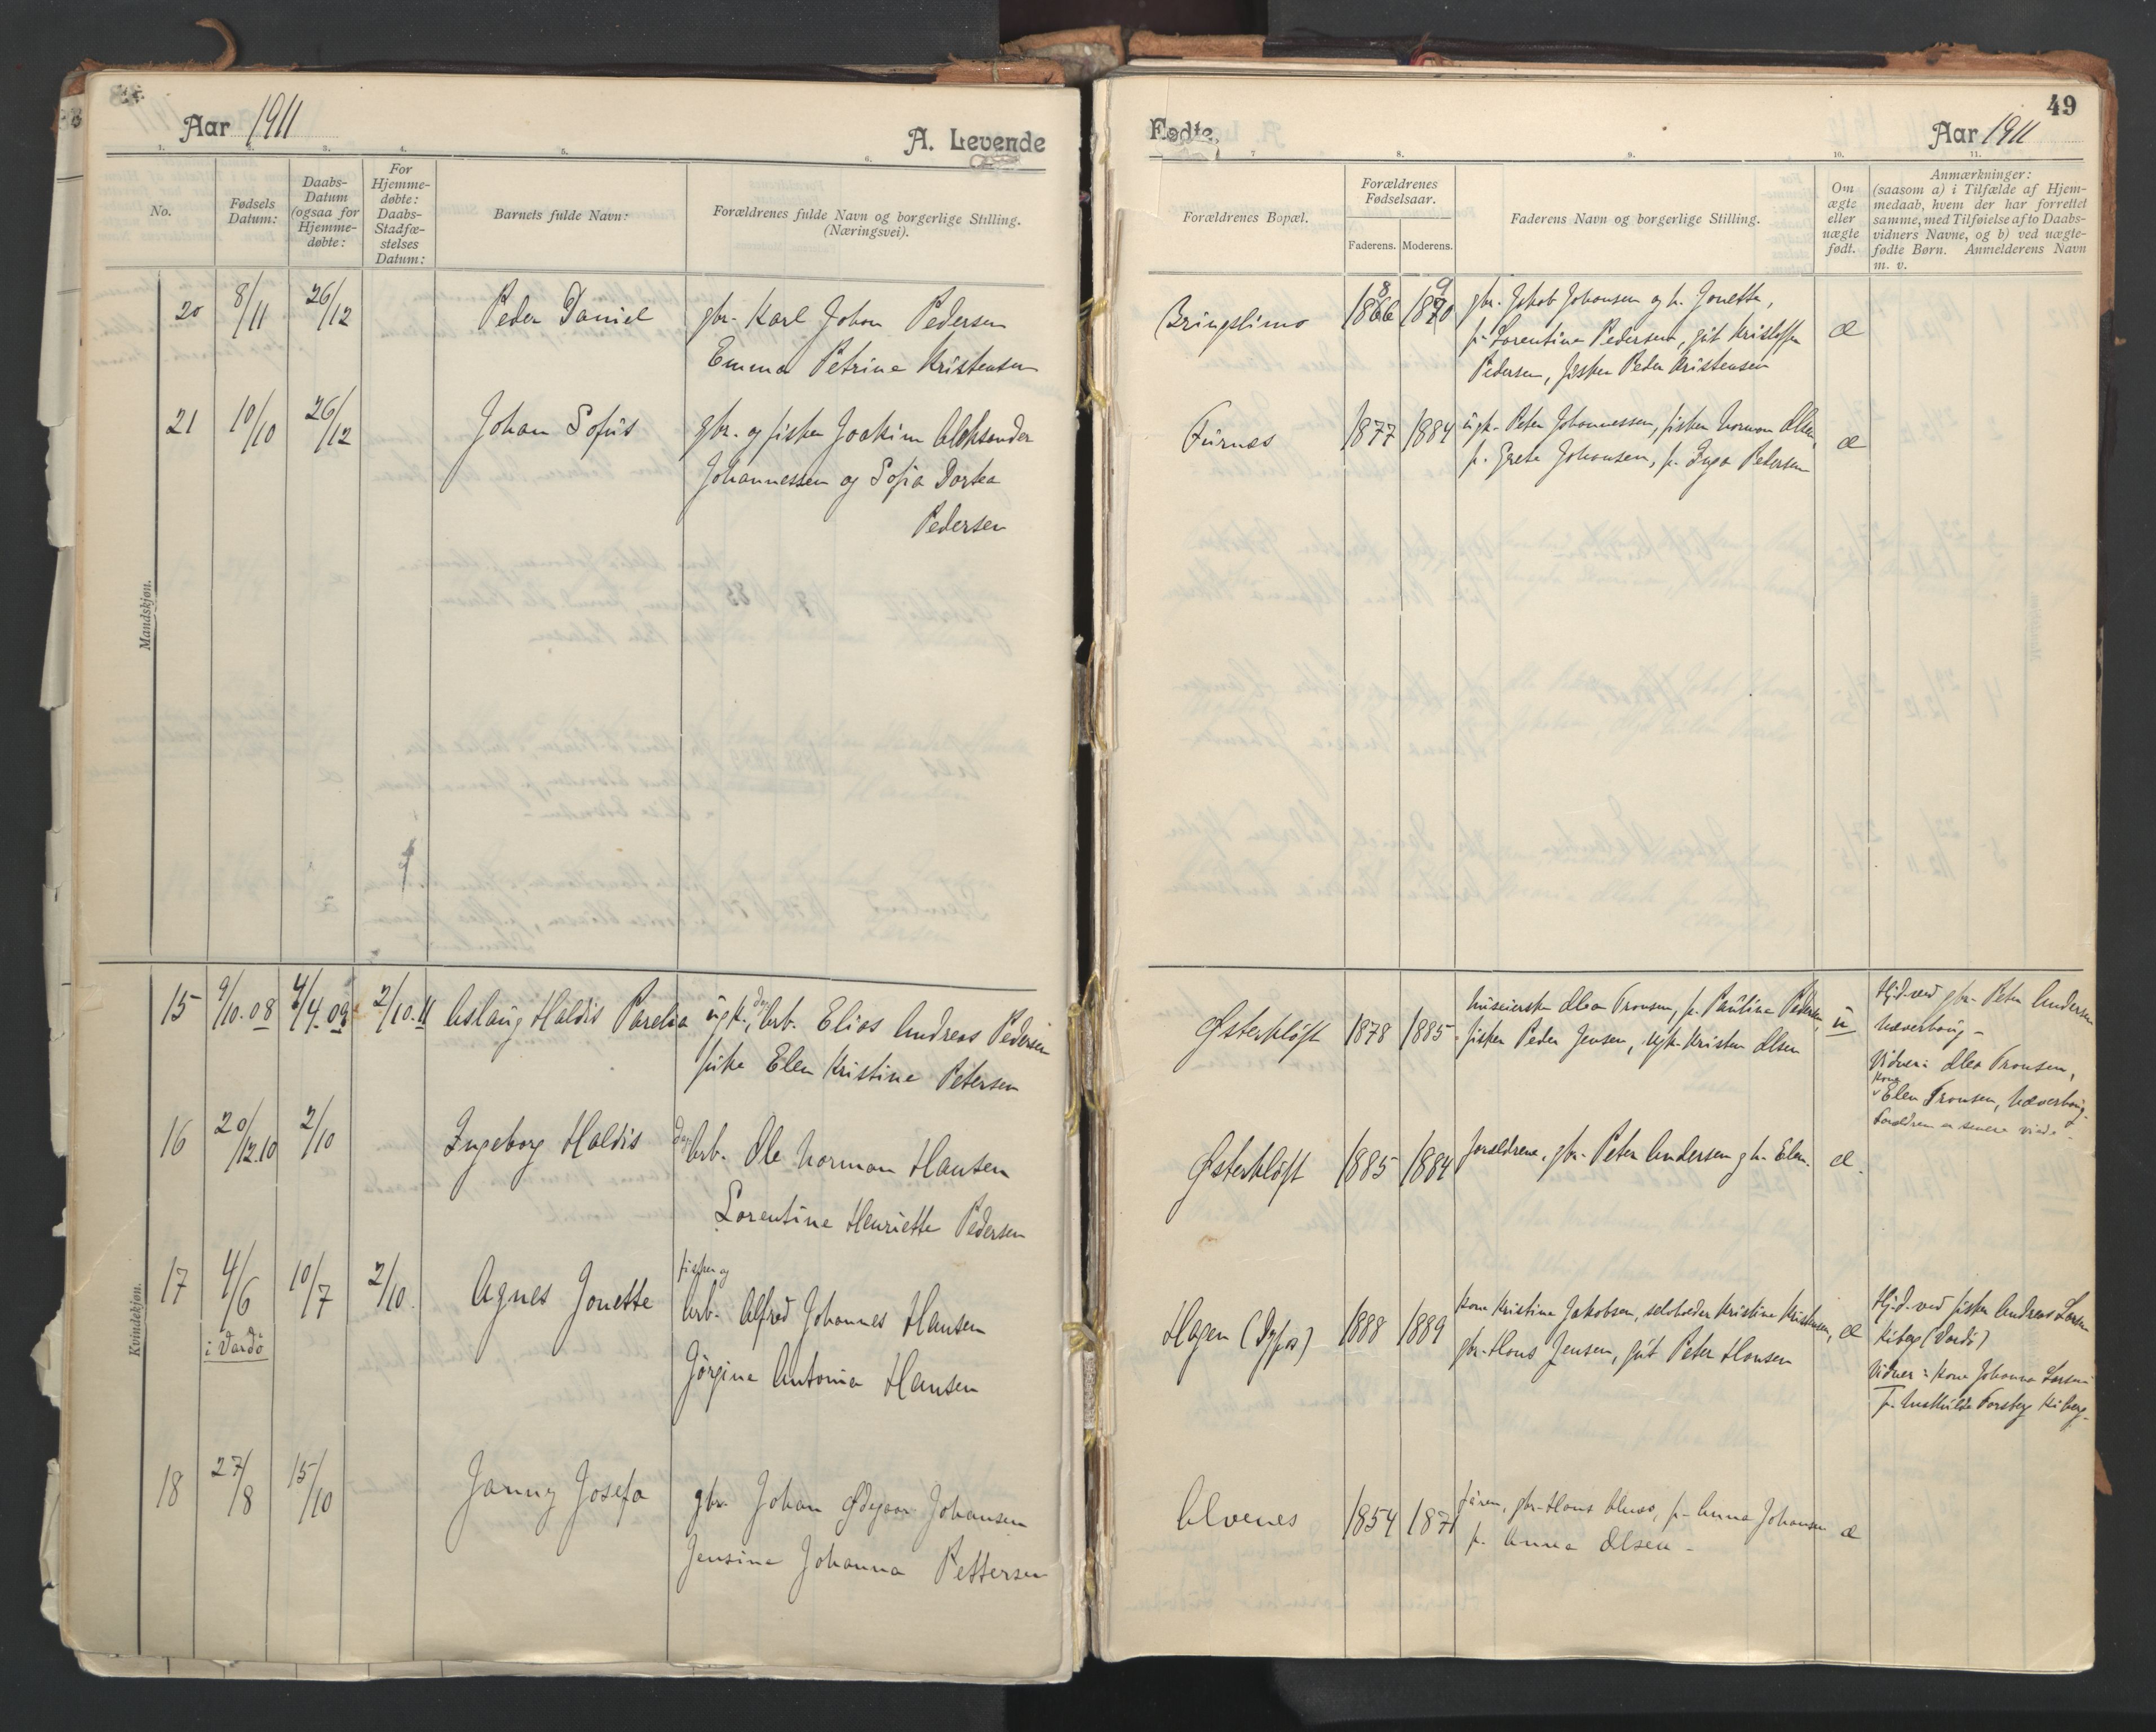 Aar 1911
A. Levende
1. 2. 3. 4. 5. 6.
No.
Fødsels Datum:
Daabs-Datum (ogsaa for Hjemme-døbte:
For Hjemme-døbte: Daabs-Stadfæ-stelses Datum:
Barnets fulde Navn:
Forældrenes fulde Navn og borgerlige Stilling. (Næringsvei).
Mandskjøn.
20 8/11 26/12 Peder Daniel gbr. Karl Johan Pedersen
Emma Petrine Kristensen
21 10/10 26/12 Johan Sofus gbr. og fisker Joakim Aleksander
Johannessen og Sofia Dortea
Pedersen
Kvindekjøn.
15 9/10.08 4/4.09 2/10.11 Aslaug Haldis Parelia ugk., dag arb. Elias Andreas Pedersen
pike Elen Kristine Petersen
16 20/12.10 2/10 Ingeborg Haldis dag arb. Ole Norman Hansen
Lorentine Henriette Pedersen
17 4/6 i Vardø 10/7 2/10. Agnes Jonette fisker og
arb. Alfred Johannes Hansen
Jørgine Antonia Hansen
18 27/8 15/10 Janny Josefa gbr. Johan Ødegaar Johansen
Jensine Johanna Pettersen
Fødte
49
Aar 1911
7 8. 9. 10. 11.
Forældrenes Bopæl.
Forældrenes Fødselsaar.
Faderens. Moderens.
Faderens Navn og borgerlige Stilling.
Om ægte eller uægte født.
Anmærkninger:
(saasom a) i Tilfælde af Hjem-
medaab, hvem der har forrettet
samme, med Tilføielse af to Daabs-
vidners Navne, og b) ved uægte-
fødte Børn. Anmelderens Navn
m. v.
Bringslimo 1866 1870 gbr. Jakob Johansen og h. Jonette,
p. Lorentine Pedersen, gut Kristoffer
Pedersen, fisker Peder Kristensen
æ
Furnes 1877 1884 ugk. Peter Johannessen, fisker Norman Olsen,
p. Grete Johansen, p. Inga Pedersen
æ
Østerkløft 1878 1885 Olea Tronsen, p. Paulina Pedersen,
fisker Peder Jensen, ugk. Kristen Olsen
u
Hj.d. ved gbr. Peter Andersen
Næverhaug
Vidner: Olea Tronsen,
Kone
Elen Tronsen, Næverhaug
Forældrene er senere viede.
Østerkløft 1885 1884 Forældrene, gbr. Peter Andersen g h. Elen.
æ.
Hagen ( ) 1888 1889 Kone Kristine Jakobsen, selvhoeder Kristine Kristensen,
gbr. Hans Jensen, gut Peter Hansen
æ
Hj.d. ved fisker Andreas Larsen
Kiberg (Vardø)
Vidner: Kone Johanna Larsen
p. Mathilde Forsberg Kiberg
Alvenes 1854 1871 Faren, gbr. Hans , p. Anna Johansen
p. Anna Olsen
æ